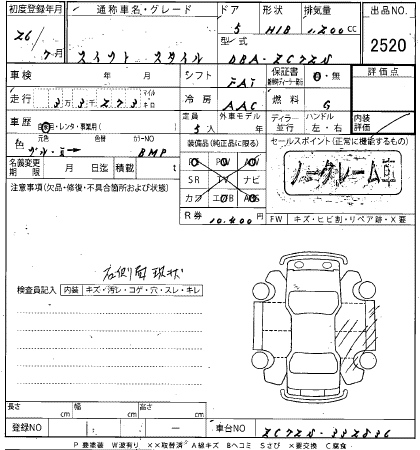 初度登録年月 通称車名・グレード ドア 形状 排気量 出品NO.
26 7月 スイフト スタイル 5 H/B 1,200 cc 2520
型式 DBA-ZC72S
車検 年 月 シフト FAT 保証書 ・無 評価点
走行 33273 マイル キロ 冷房 AAC 燃料 G
車歴 自家用・レンタ・事業用( ) 定員 5人 外車モデル 年 ディーラー 並行 ハンドル 左・右 内装評価
色 元色 ブルー 色替 カラーNO BMP 装備品(純正品に限る) セールスポイント(正常に機能するもの)
名義変更期限 月 日迄 積載 t PS PW AW ノークレーム車
注意事項(欠品・修復・不具合箇所および状態) SR TV ナビ
カワ エアB ABS
R券 FW キズ・ヒビ割・リペア跡・X要
右側面現状
検査員記入 内装 キズ・汚レ・コゲ・穴・スレ・キレ
長さ cm 幅 cm 高さ cm
登録NO 車台NO ZC72S-332836
P 要塗装 W波有り ××取替済 A線キズ Bヘコミ Sさび ×要交換 C腐食